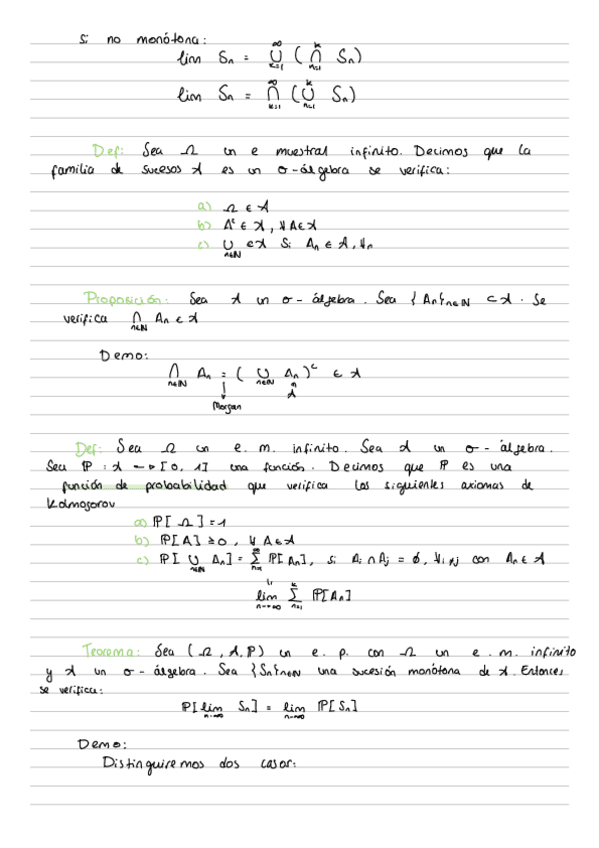 Si no monótona:
lim Sn = ∞∪k=1 ( k∩n=1 Sn)
lim Sn = ∞∩k=1 ( k∪n=1 Sn)
Def: Sea Ω un e muestral infinito. Decimos que la
familia de sucesos A es un σ-álgebra se verifica:
a) Ω ∈ A
b) Aᶜ ∈ A, ∀A∈A
c) ∪n∈ℕ ∈A Si An ∈ A, ∀n
Proposición: Sea A un σ-álgebra. Sea {An}n∈ℕ ⊂ A. Se
verifica ∩n∈ℕ An ∈ A
Demo:
∩n∈ℕ An = ( ∪n∈ℕ An )ᶜ ∈ A
↓ Morgan
Def: Sea Ω un e. m. infinito. Sea A un σ-álgebra.
Sea ℙ : A → [0, 1] una función. Decimos que ℙ es una
función de probabilidad que verifica los siguientes axiomas de
Kolmogorov
a) ℙ[Ω] = 1
b) ℙ[A] ≥ 0, ∀ A∈A
c) ℙ[ ∪n∈ℕ An] = ∞Σn=1 ℙ[An], si Ai ∩ Aj = ∅, ∀i≠j con An ∈ A
lim n→∞ kΣn=1 ℙ[An]
Teorema: Sea (Ω, A, ℙ) un e. p. con Ω un e. m. infinito
y A un σ-álgebra. Sea {Sn}n∈ℕ una sucesión monótona de A. Entonces
se verifica:
ℙ[lim n→∞ Sn] = lim n→∞ ℙ[Sn]
Demo:
Distinguiremos dos casos: